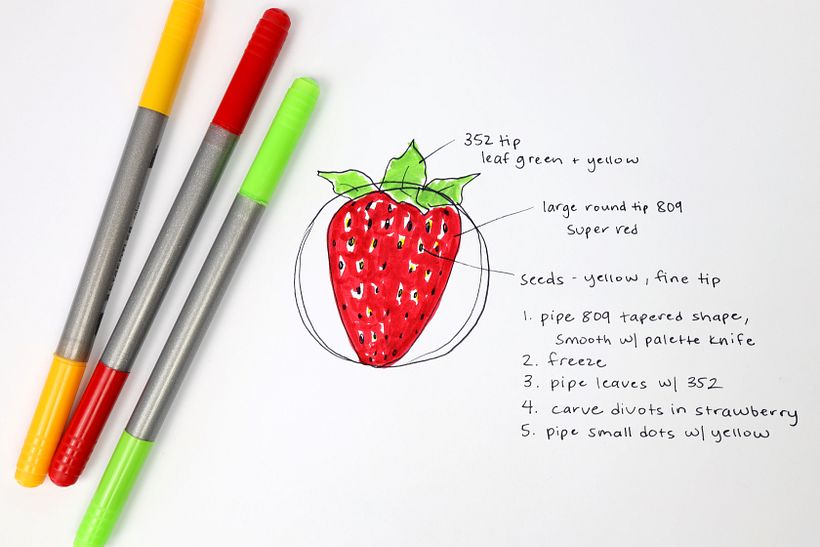 352 tip
leaf green + yellow
large round tip 809
Super red
seeds - yellow, fine tip
1. pipe 809 tapered shape,
smooth w/ palette knife
2. freeze
3. pipe leaves w/ 352
4. carve divots in strawberry
5. pipe small dots w/ yellow